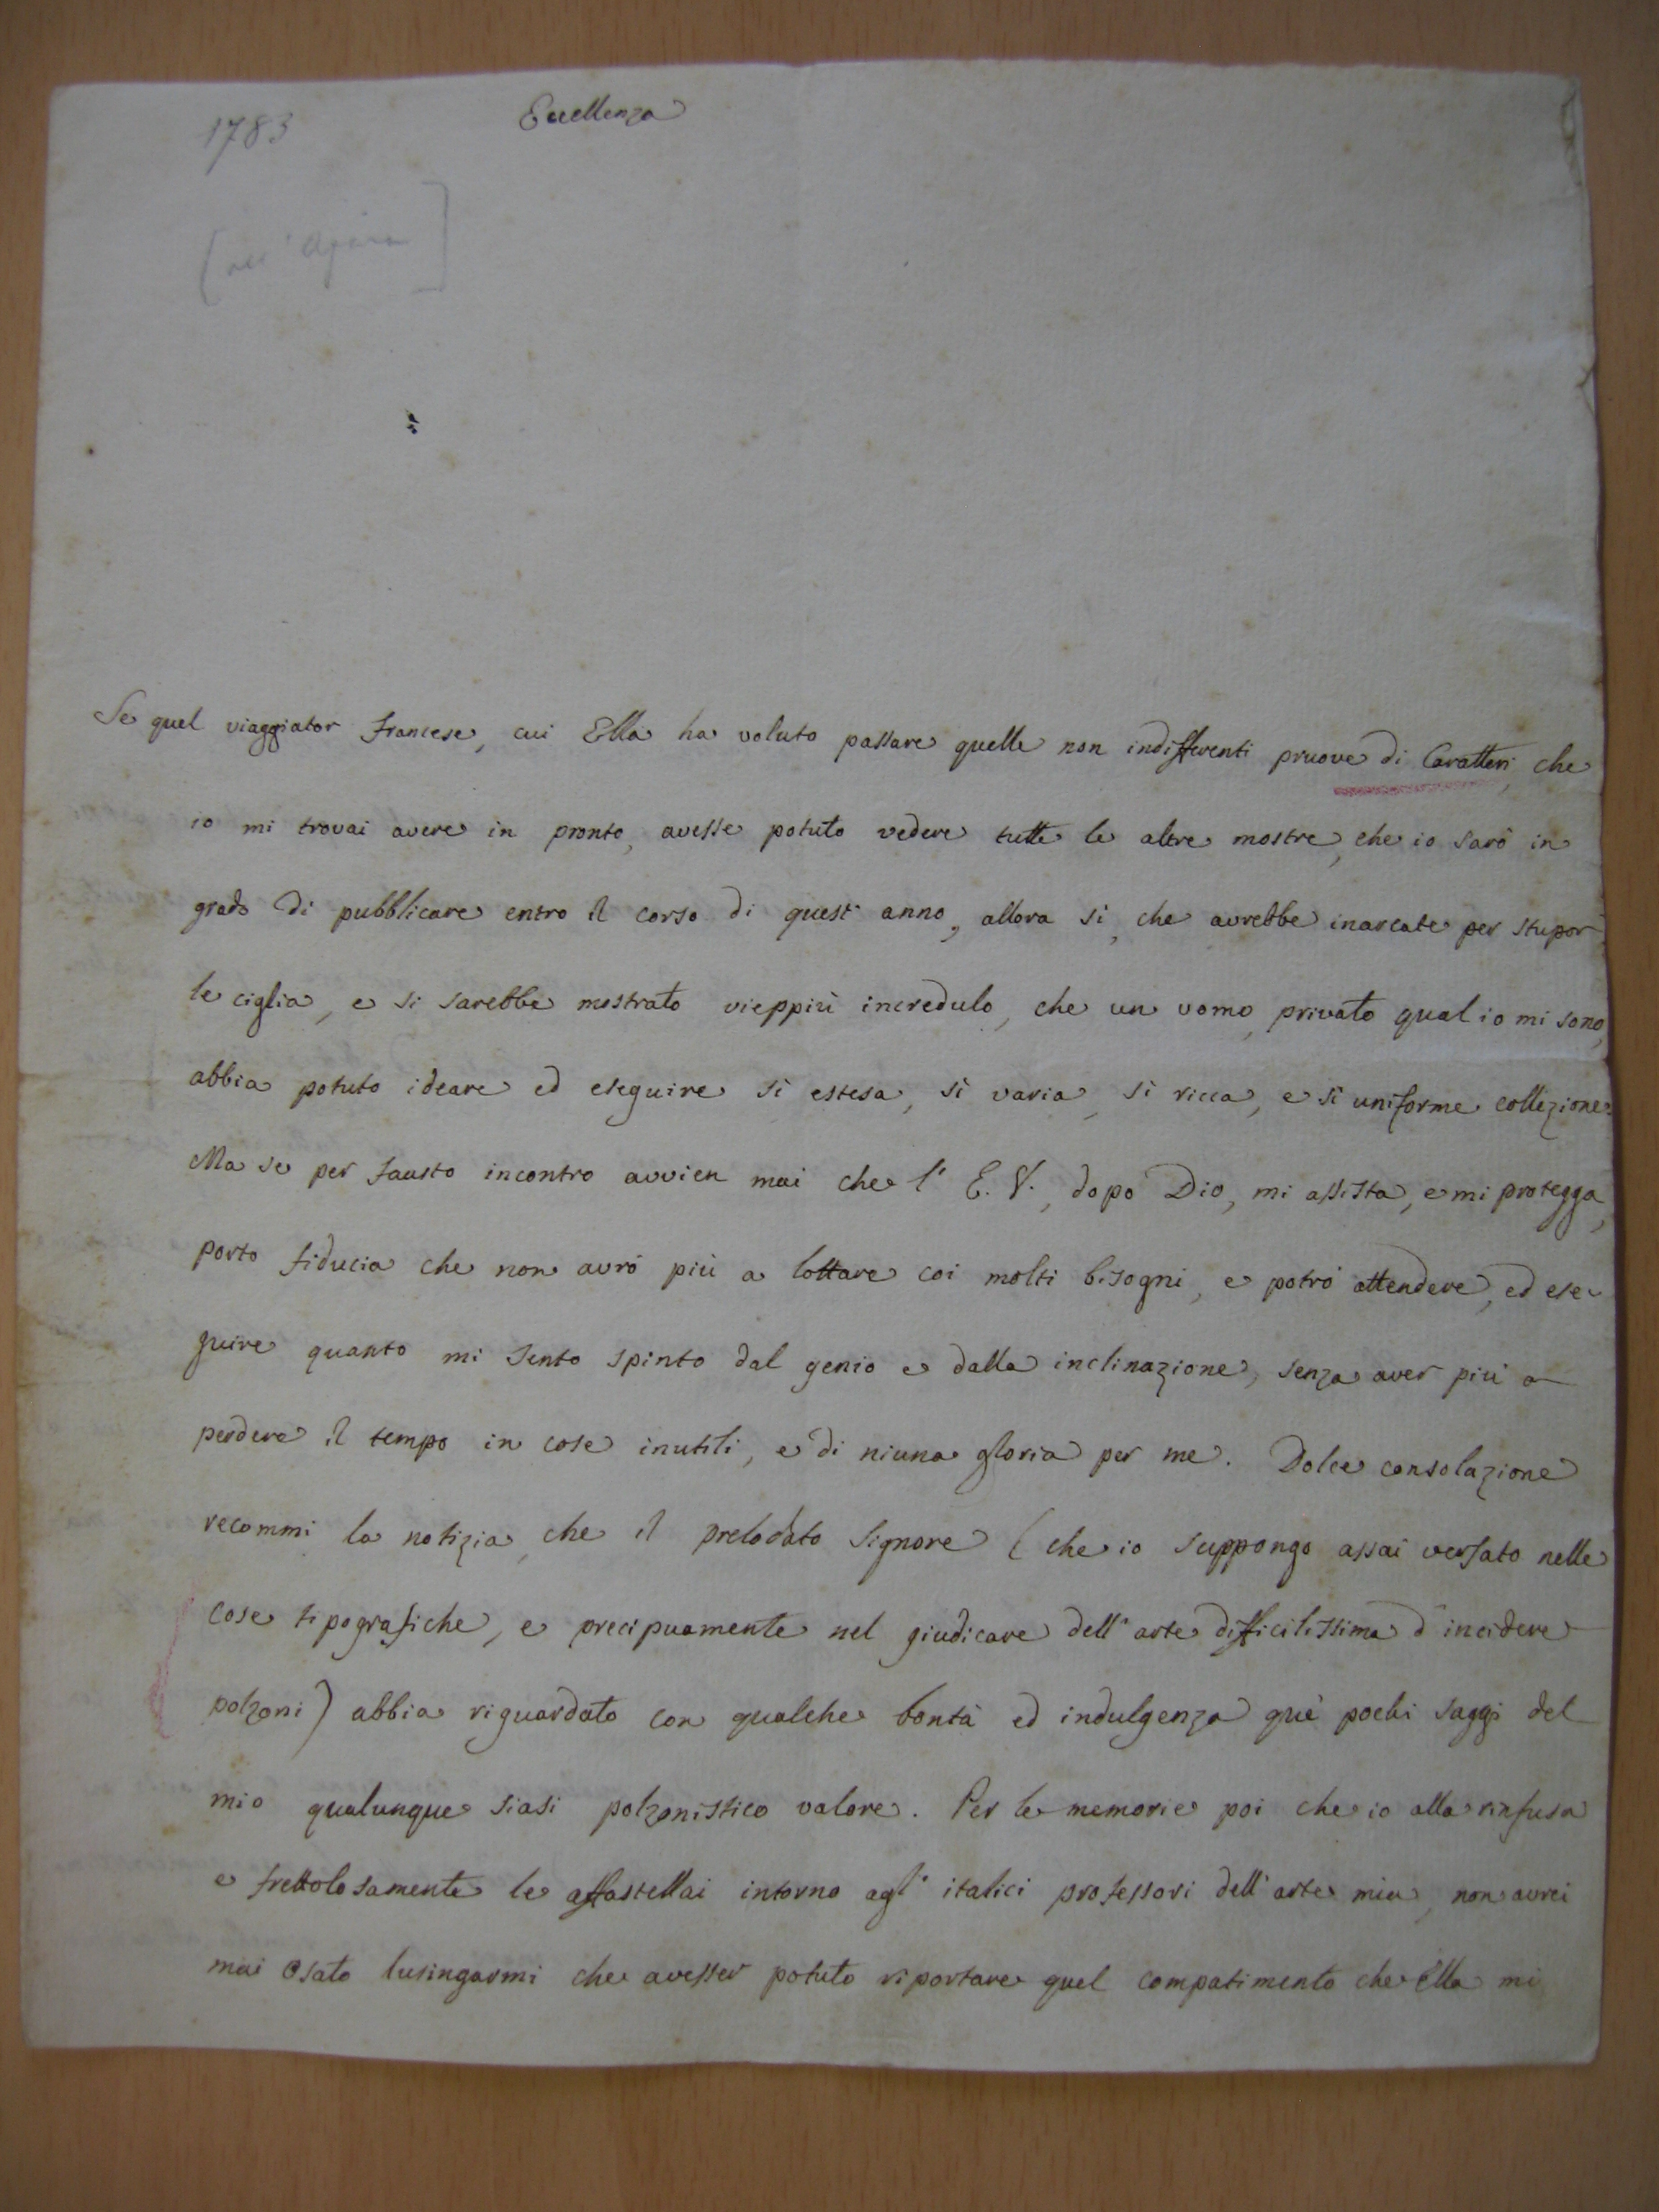 1783
Eccellenza
Se quel viaggiator francese, cui Ella ha voluto passare quelle non indifferenti pruove di Caratteri, che
io mi trovai avere in pronto, avesse potuto vedere tutte le altre mostre, che io sarò in
grado di pubblicare entro il corso di quest' anno, allora sì, che avrebbe inarcate per stupor
le ciglia, e si sarebbe mostrato vieppiù incredulo, che un uomo privato qual io mi sono,
abbia potuto ideare ed eseguire sì estesa, sì varia, sì ricca, e sì uniforme collezione.
Ma se per fausto incontro avvien mai che l' E. V., dopo Dio, mi assista, e mi protegga,
porto fiducia che non avrò più a lottare coi molti bisogni, e potrò attendere, ed ese-
guire quanto mi sento spinto dal genio e dalla inclinazione, senza aver più a
perdere il tempo in cose inutili, e di niuna gloria per me. Dolce consolazione
recommi la notizia, che il prelodato Signore (che io suppongo assai versato nelle
cose tipografiche, e precipuamente nel giudicare dell' arte difficilissima d' incidere
polzoni) abbia riguardato con qualche bontà ed indulgenza que' pochi saggi del
mio qualunque siasi polzonistico valore. Per le memorie poi che io alla rinfusa
e frettolosamente le affastellai intorno agl' italici professori dell' arte mia, non avrei
mai osato lusingarmi che avesser potuto riportare quel compatimento che Ella mi